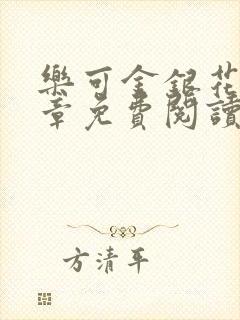 樂可金銀花
章免費閱讀
方清平